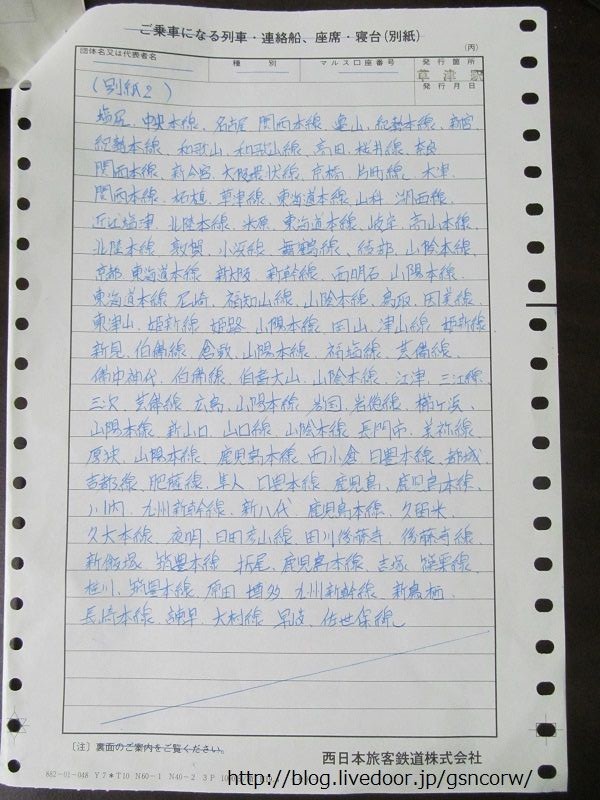 ご乗車になる列車・連絡船、座席・寝台(別紙)
(丙)
団体名又は代表者名
種別
マルス口座番号
発行箇所
草津駅
発行月日
(別紙2)
塩尻、中央本線、名古屋、関西本線、亀山、紀勢本線、新宮
紀勢本線、和歌山、和歌山線、高田、桜井線、奈良
関西本線、新今宮、大阪環状線、京橋、片町線、木津、
関西本線、柘植、草津線、東海道本線、山科、湖西線、
近江塩津、北陸本線、米原、東海道本線、岐阜、高山本線、
北陸本線、敦賀、小浜線、舞鶴線、綾部、山陰本線、
京都、東海道本線、新大阪、新幹線、西明石、山陽本線、
東海道本線、尼崎、福知山線、山陰本線、鳥取、因美線、
東津山、姫新線、姫路、山陽本線、岡山、津山線、姫新線
新見、伯備線、倉敷、山陽本線、福塩線、芸備線、
備中神代、伯備線、伯耆大山、山陰本線、江津、三江線、
三次、芸備線、広島、山陽本線、岩国、岩徳線、櫛ヶ浜、
山陽本線、新山口、山口線、山陰本線、長門市、美祢線、
厚狭、山陽本線、鹿児島本線、西小倉、日豊本線、都城、
吉都線、肥薩線、隼人、日豊本線、鹿児島、鹿児島本線、
川内、九州新幹線、新八代、鹿児島本線、久留米、
久大本線、夜明、日田彦山線、田川後藤寺、後藤寺線、
新飯塚、筑豊本線、折尾、鹿児島本線、吉塚、篠栗線、
桂川、筑豊本線、原田、博多、九州新幹線、新鳥栖、
長崎本線、諫早、大村線、早岐、佐世保線
〔注〕裏面のご案内をご覧ください。
西日本旅客鉄道株式会社
882-01-048 Y7*T10 N60-1 N40-2 3P
http://blog.livedoor.jp/gsncorw/